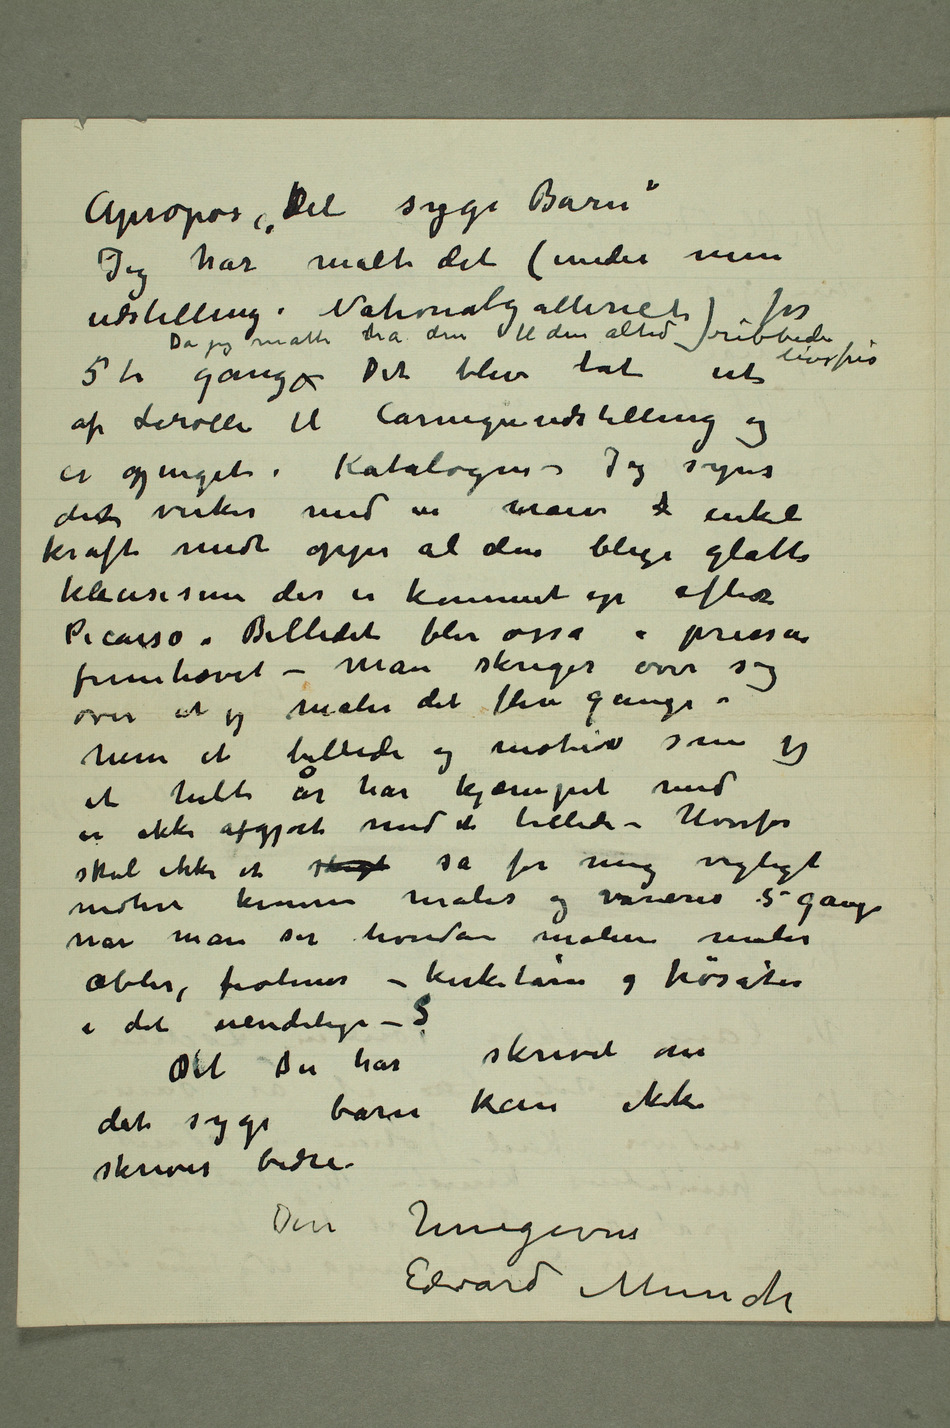 Apropos „Det syge Barn"
Jeg har malt det (under min
udstilling i Nationalgalleriet) for
Da jeg måtte ha den til den altid ribbede
livsfris
5te gang Det blev tat ut
af Lerolle til Carnegieudstilling og
er gjengit i Katalogen – Jeg synes
det virker med en naiv enkel
kraft midt oppi al den blege glatte
klasisisme der er kommet op efter
Picasso. Billedet blir osså i pressen
fremhævet – Man skriger over sig
over at jeg maler det flere gange –
Men et billede og motiv som jeg
et helt år har kjæmpet med
er ikke afgjort med et billede – Hvorfor
skal ikke et sligt så for mig vigtigt
motiv kunne males og varieres 5 gange
når man ser hvordan malerne maler
æbler, fioliner – kirketårn og høsåter
i det uendelige – ?
Det Du har skrivet om
det syge barn kan ikke
skrives bedre
Din hengivne
Edvard Munch